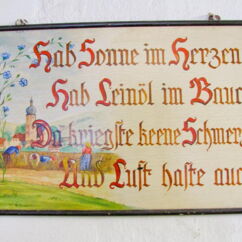 Hab Sonne im Herzen
Hab Leinöl im Bauch
Du kriegste keene Schmerz
Und Lust haste auc